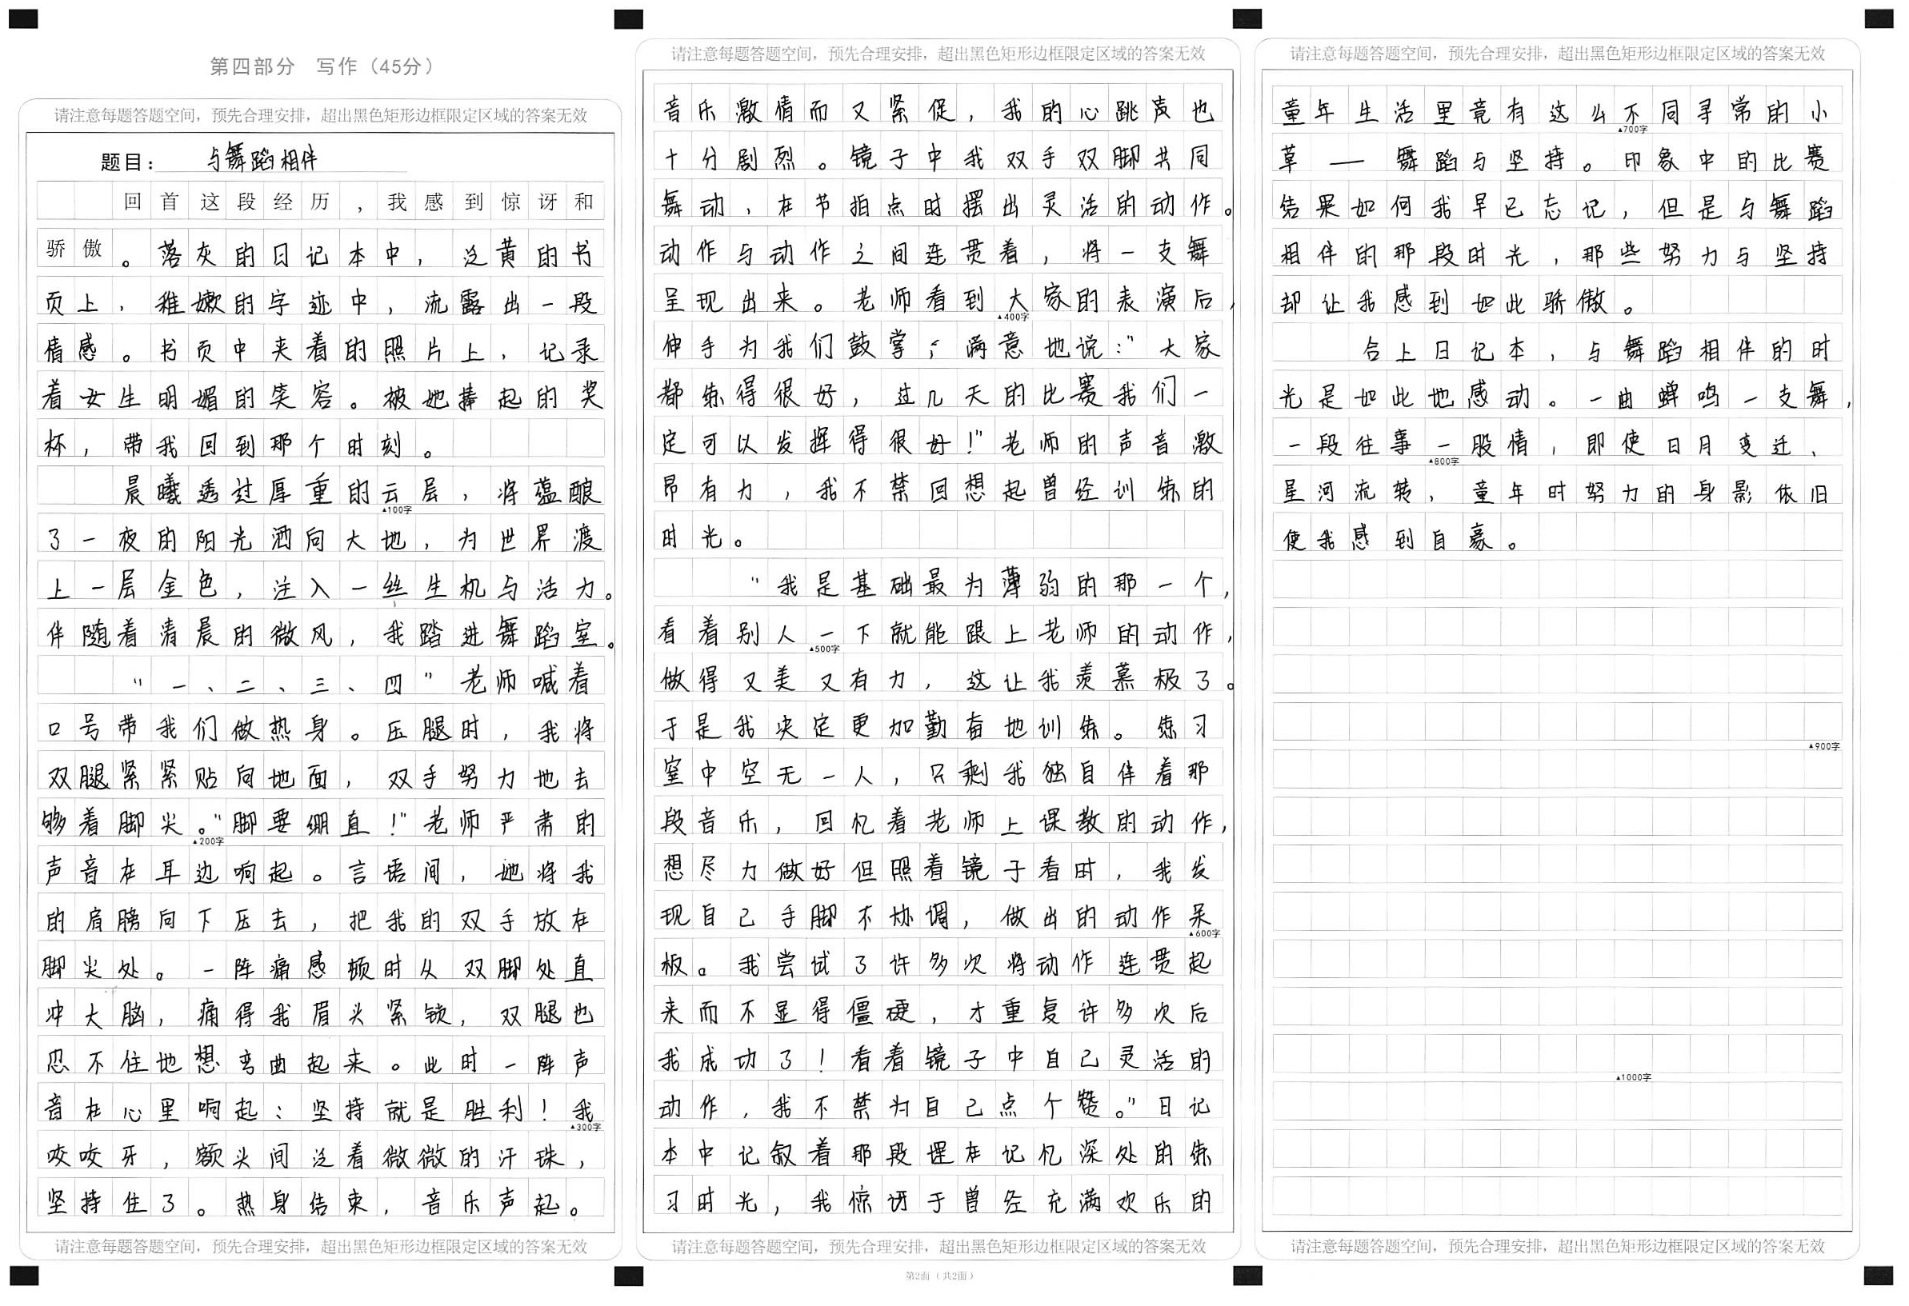 第四部分 写作（45分）
请注意每题答题空间，预先合理安排，超出黑色矩形边框限定区域的答案无效
题目： 与舞蹈相伴
回首这段经历，我感到惊讶和
骄傲。落灰的日记本中，泛黄的书
页上，稚嫩的字迹中，流露出一段
情感。书页中夹着的照片上，记录
着女生明媚的笑容。被她捧起的奖
杯，带我回到那个时刻。
晨曦透过厚重的云层，将蕴酿
▲100字
了一夜的阳光洒向大地，为世界渡
上一层金色，注入一丝生机与活力。
伴随着清晨的微风，我踏进舞蹈室。
“一、二、三、四”老师喊着
口号带我们做热身。压腿时，我将
双腿紧紧贴向地面，双手努力地去
够着脚尖。“脚要绷直！”老师严肃的
▲200字
声音在耳边响起。言语间，她将我
的肩膀向下压去，把我的双手放在
脚尖处。一阵痛感顿时从双脚处直
冲大脑，痛得我眉头紧锁，双腿也
忍不住地想弯曲起来。此时一阵声
音在心里响起：坚持就是胜利！我
▲300字
咬咬牙，额头间泛着微微的汗珠，
坚持住了。热身结束，音乐声起。
请注意每题答题空间，预先合理安排，超出黑色矩形边框限定区域的答案无效
请注意每题答题空间，预先合理安排，超出黑色矩形边框限定区域的答案无效
音乐激情而又紧促，我的心跳声也
十分剧烈。镜子中我双手双脚共同
舞动，在节拍点时摆出灵活的动作。
动作与动作之间连贯着，将一支舞
呈现出来。老师看到大家的表演后，
▲400字
伸手为我们鼓掌，满意地说：“大家
都练得很好，过几天的比赛我们一
定可以发挥得很好！”老师的声音激
昂有力，我不禁回想起曾经训练的
时光。
“我是基础最为薄弱的那一个，
看着别人一下就能跟上老师的动作，
▲500字
做得又美又有力，这让我羡慕极了。
于是我决定更加勤奋地训练。练习
室中空无一人，只剩我独自伴着那
段音乐，回忆着老师上课教的动作，
想尽力做好但照着镜子看时，我发
现自己手脚不协调，做出的动作呆
▲600字
板。我尝试了许多次将动作连贯起
来而不显得僵硬，才重复许多次后
我成功了！看着镜子中自己灵活的
动作，我不禁为自己点个赞。”日记
本中记叙着那段埋在记忆深处的练
习时光，我惊讶于曾经充满欢乐的
请注意每题答题空间，预先合理安排，超出黑色矩形边框限定区域的答案无效
第2面（共2面）
请注意每题答题空间，预先合理安排，超出黑色矩形边框限定区域的答案无效
童年生活里竟有这么不同寻常的小
▲700字
草——舞蹈与坚持。印象中的比赛
结果如何我早已忘记，但是与舞蹈
相伴的那段时光，那些努力与坚持
却让我感到如此骄傲。
合上日记本，与舞蹈相伴的时
光是如此地感动。一曲蝉鸣一支舞，
一段往事一股情，即使日月变迁、
▲800字
星河流转，童年时努力的身影依旧
使我感到自豪。
▲900字
▲1000字
请注意每题答题空间，预先合理安排，超出黑色矩形边框限定区域的答案无效